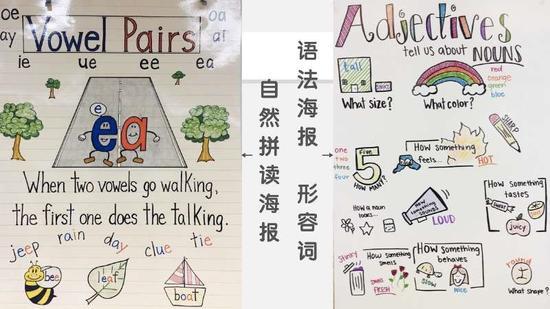 oe
ay
Vowel Pairs
oa
ai
ie ue ee ea
e
ea
When two vowels go walking,
the first one does the talking.
jeep rain day clue tie
bee
leaf
boat
语法海报 形容词
自然拼读海报
Adjectives
tell us about NOUNS
tall
What size?
red
orange
green
blue
What color?
SHARP
one
two
three
four
five
5
HOW MANY?
How something
feels...
HOT
How a noun
looks...
How
something
sounds
LOUD
How something
tastes
SWEET
juicy
Stinky
How something
smells
smells
FRESH
HOW something
behaves
SLOW
nice
round
What shape?